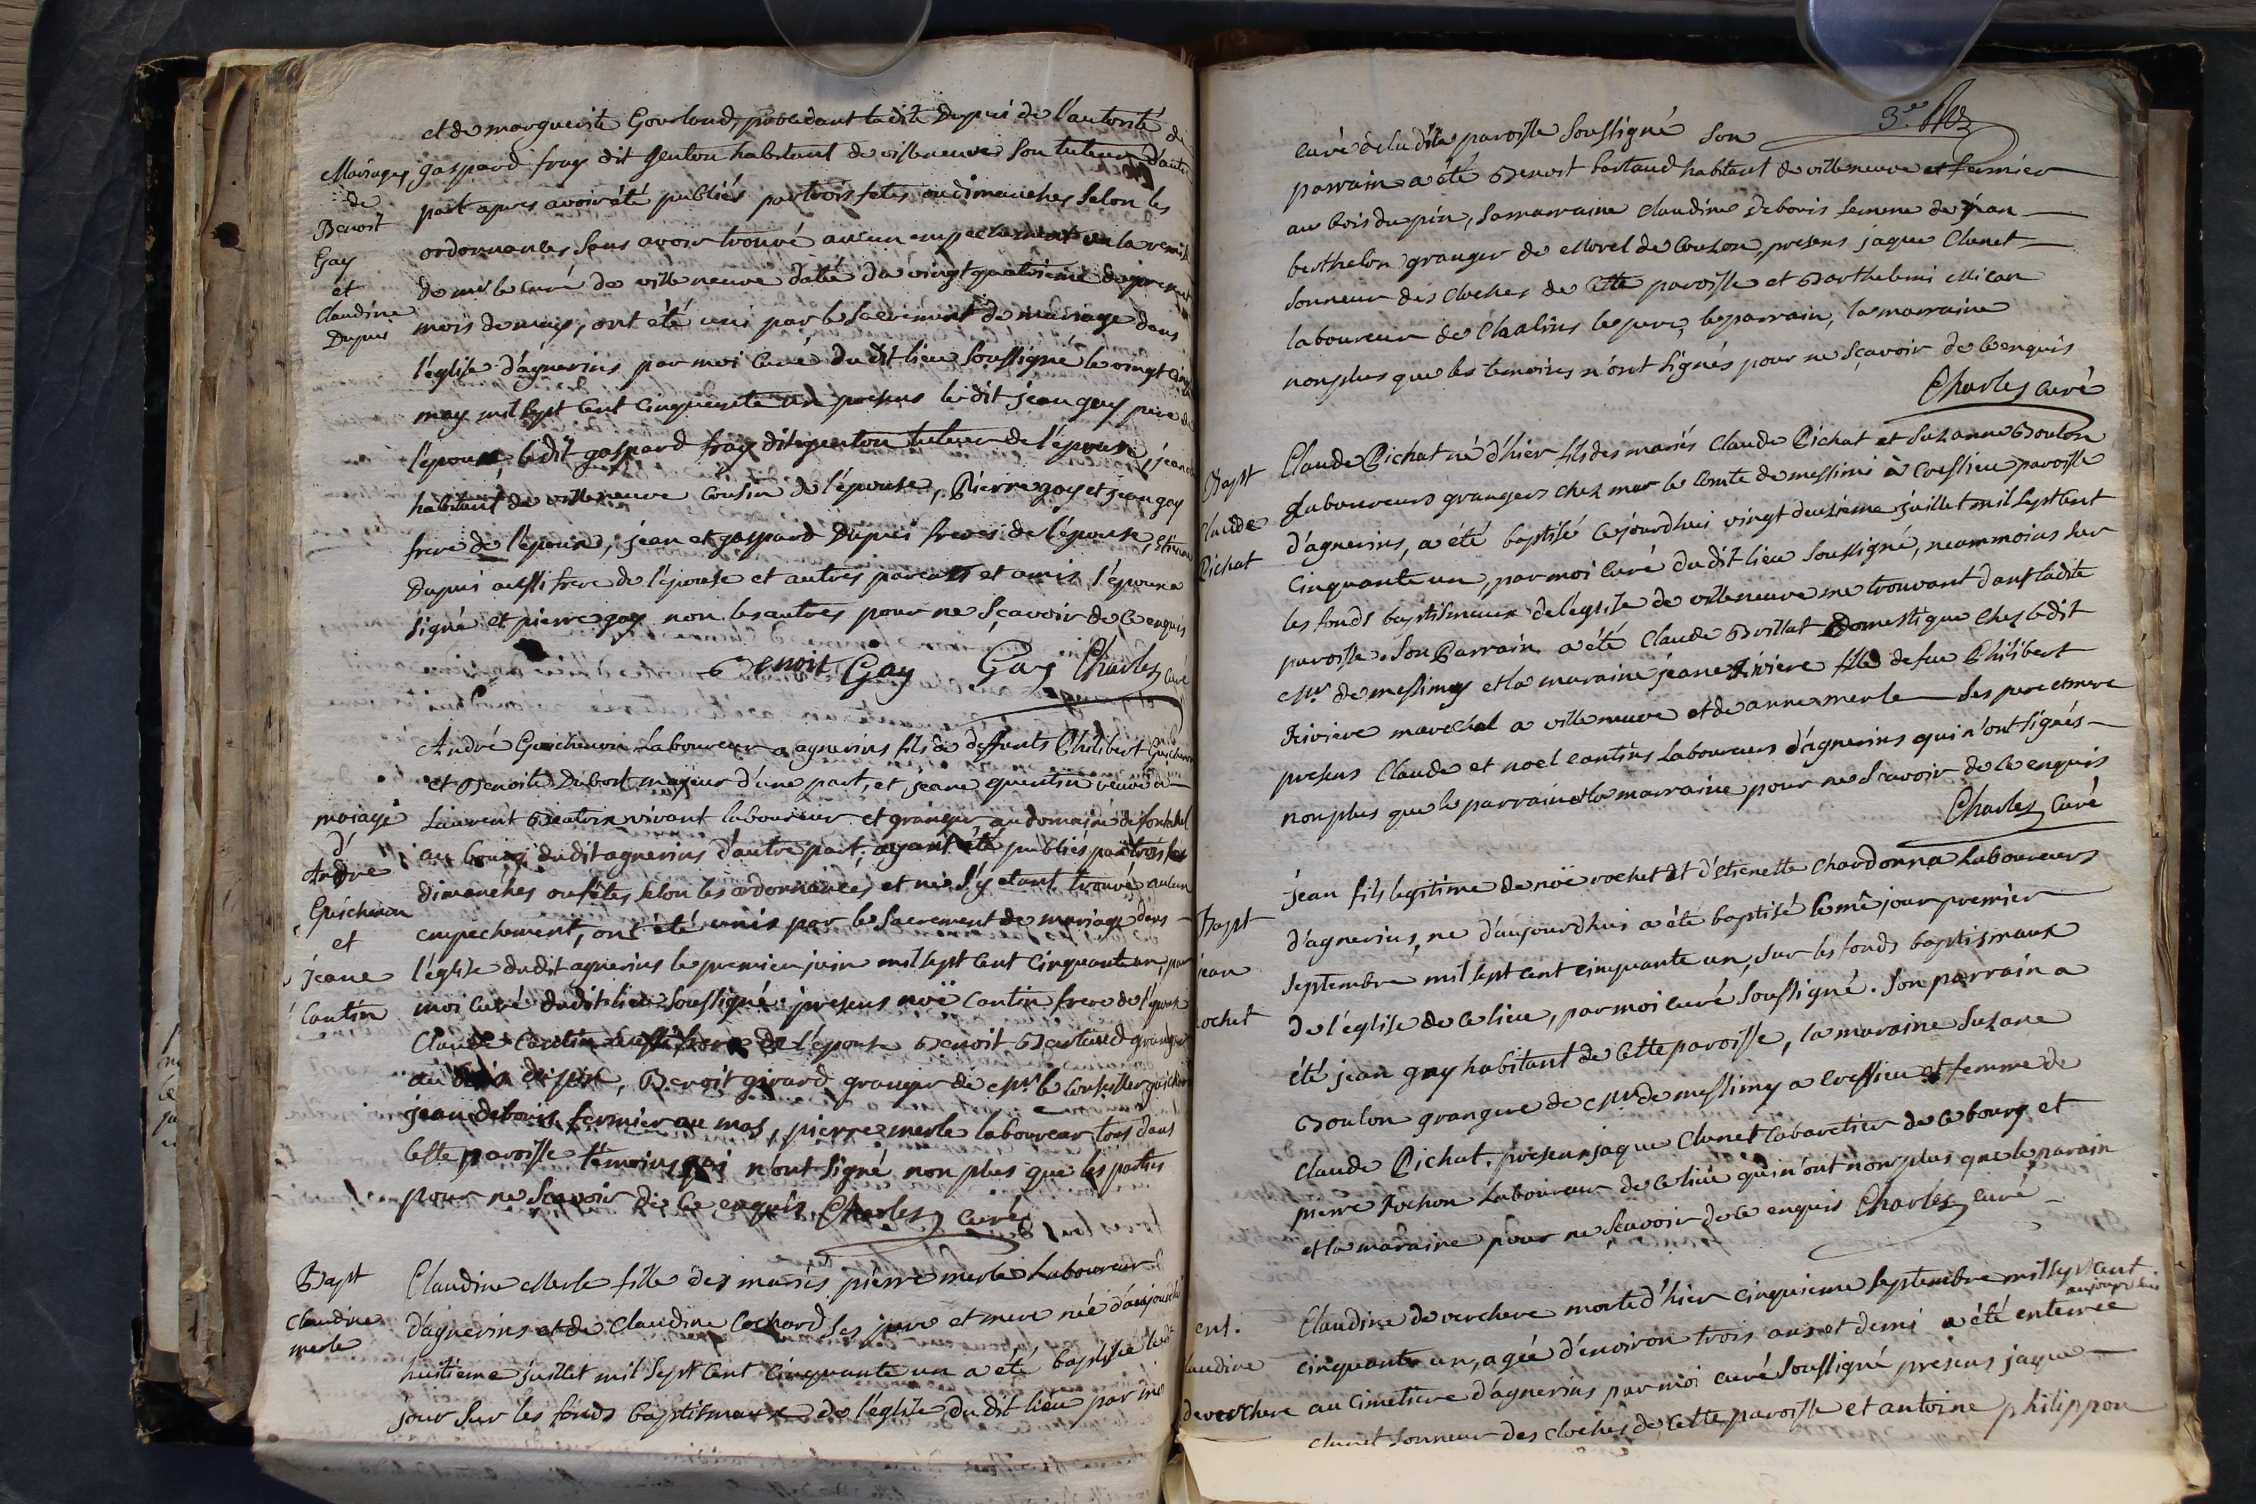 et de marguerite Gourland, procedant la dite Dupui de l'autorité de
gaspard fray dit quenton habitant de villeneuve son tuteur d'autre
part apres avoir été publiés par trois fetes ou dimanches selon les
ordonnances sans avoir trouvé aucun empechement vu la remise
de mr le curé de villeneuve datée du vingt quatrieme du present
mois de may, ont été unis par le sacrement de mariage dans
l'église d'agnerins par moi curé du dit lieu soussigné le vingt cinq
may mil sept cent cinquante un presens le dit jean gay pere de
l'epoux, le dit gaspard fray dit quenton tuteur de l'epouse, jean
habitant de villeneuve cousin de l'épouse, Pierre gay et jean gay
frere de l'epoux, jean et gaspard Dupui freres de l'épouse, etienne
Dupui aussi frere de l'epouse et autres parents et amis l'époux a
signé et pierre gay non les autres pour ne sçavoir de ce enquis
Benoit Gay Gay Charles curé
Mariages
de
Benoit
Gay
et
Claudine
Dupui
André Guichenon Laboureur a agnerins fils a deffunts Philibert Guichenon
et Benoite Dubost majeur d'une part, et jeane quentin veuve a
Laurent vivant laboureur et granger au domaine de
au bourg dudit agnerins d'autre part, ayant été publiés par trois
dimanches ou fêtes selon les ordonnances et ne s'y étant trouvé aucun
empechement, ont été unis par le sacrement de mariage dans
l'église dudit agnerins le premier juin mil sept cent cinquante un, par
moi curé dudit lieu soussigné presens noë cantin frere de l'epouse
Claude Cantin aussi frere de l'épouse Benoit Bertaud granger
au bois du pin, Benoit girard granger de mr le conseiller guichenon
jean debovis fermier au mas, pierre merle laboureur tous dans
cette paroisse temoins qui n'ont signé non plus que les parties
pour ne sçavoir de ce enquis. Charles curé
mariage
d'
André
Guichenon
et
Jeane
Cantin
Claudine Merle fille des mariés pierre merle Laboureur
d'agnerins et de Claudine Cochard ses pere et mere née d'aujourd'hui
huitieme juillet mil sept cent cinquante un a été baptisée le dit
jour sur les fonds baptismaux de l'église du dit lieu par moi
Bapt
Claudine
merle
3.e
curé de la dite paroisse soussigné son
parrain a été Benoit bertaud habitant de villeneuve et fermier
au bois du pin, sa marraine Claudine debovis femme de jean
berthelon granger de Morel de Couzon, presens jaque Clunet
sonneur des cloches de cette paroisse et Barthelemi Milan
laboureur de Chalins le pere, le parrain, la marraine
non plus que les temoins n'ont signés pour ne sçavoir de ce enquis
Charles curé
Claude Pichat né d'hier fils des mariés Claude Pichat et Suzanne Boulon
Laboureurs grangers chez mr le Comte de messimi à Cressieu paroisse
d'agnerins, a été baptisé ce jourd'hui vingt deuxieme juillet mil sept cent
cinquante un, par moi curé du dit lieu soussigné, neammoins sur
les fonds baptismaux de l'eglise de villeneuve me trouvant dans la dite
paroisse. Son Parrain a été Claude Brillat Domestique chez le dit
Mr. de messimy et la maraine jeane Riviere fille de feu Philibert
Riviere marechal a villeneuve et de anne merle Les pere et mere
presens Claude et noel cantins Laboureurs d'agnerins qui n'ont signés
non plus que le parrain et la marraine pour ne sçavoir de ce enquis
Charles Curé
Bapt
Claude
Pichat
Jean fils legitime de noë rochet et d'etienette chardonna Laboureurs
d'agnerins, né d'aujourd'hui a été baptisé le mê jour premier
septembre mil sept cent cinquante un, sur les fonds baptismaux
de l'église de ce lieu, par moi curé soussigné. Son parrain a
été jean gay habitant de cette paroisse, la maraine Suzane
Boulon grangere de Mr de messimy a cressieu et femme de
Claude Pichat. presens jaque Clunet Cabaretier de ce bourg et
pierre Rochon Laboureur de ce lieu qui n'ont non plus que le parain
et la maraine pour ne sçavoir de ce enquis Charles curé
Bapt
jean
rochet
Claudine deverchere morte d'hier cinquieme septembre mil sept cent
aujourd'hui
cinquante un, agée d'environ trois ans et demi a été enterrée
au cimetiere d'agnerins par moi curé soussigné presens jaque
clunet sonneur des cloches de cette paroisse et antoine philippon
ent.
laudine
deverchere